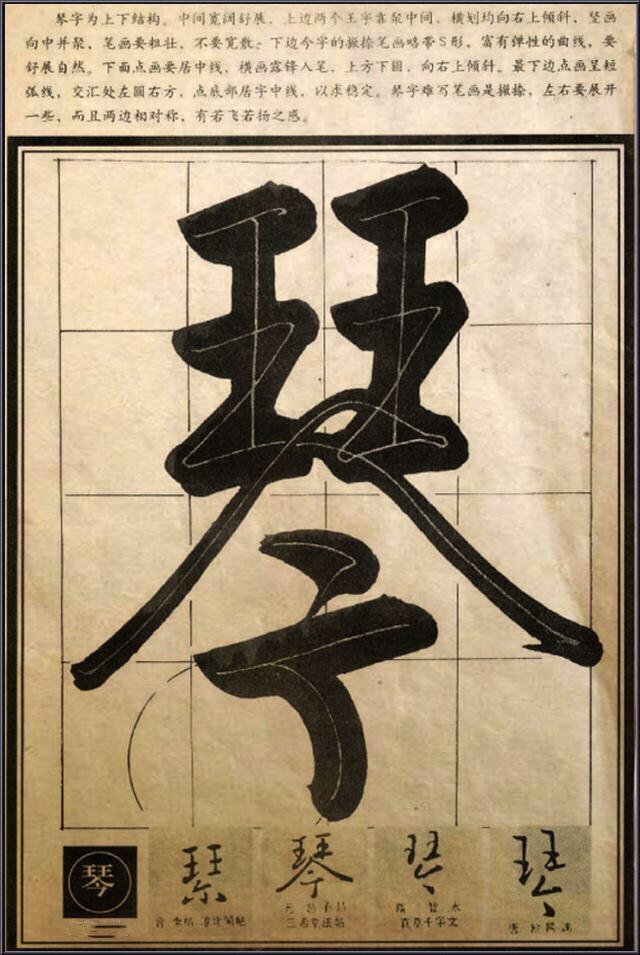 琴字为上下结构。中间宽阔舒展，上边两个王字靠聚中间，横划均向右上倾斜，竖画
向中并聚，笔画要粗壮，不要宽散。下边今字的撇捺笔画略带S形，富有弹性的曲线，要
舒展自然。下面点画要居中线，横画露锋入笔，上方下圆，向右上倾斜。最下边点画呈短
弧线，交汇处左圆右方，点底部居字中线，以求稳定。琴字难写笔画是撇捺，左右要展开
一些，而且两边相对称，有若飞若扬之感。
琴
琴
琴 琴 琴 琴
隋 智 永
真草千字文